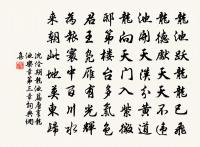 龍池躍龍龍已飛
龍德先天天不違
池開天漢分黃道
龍向天門入紫微
邸第樓臺多氣色
君王鳧雁有光輝
為報寰中百川水
來朝此地莫東歸
沈佺期龍池篇唐享龍
池樂章第三章詞典網
集